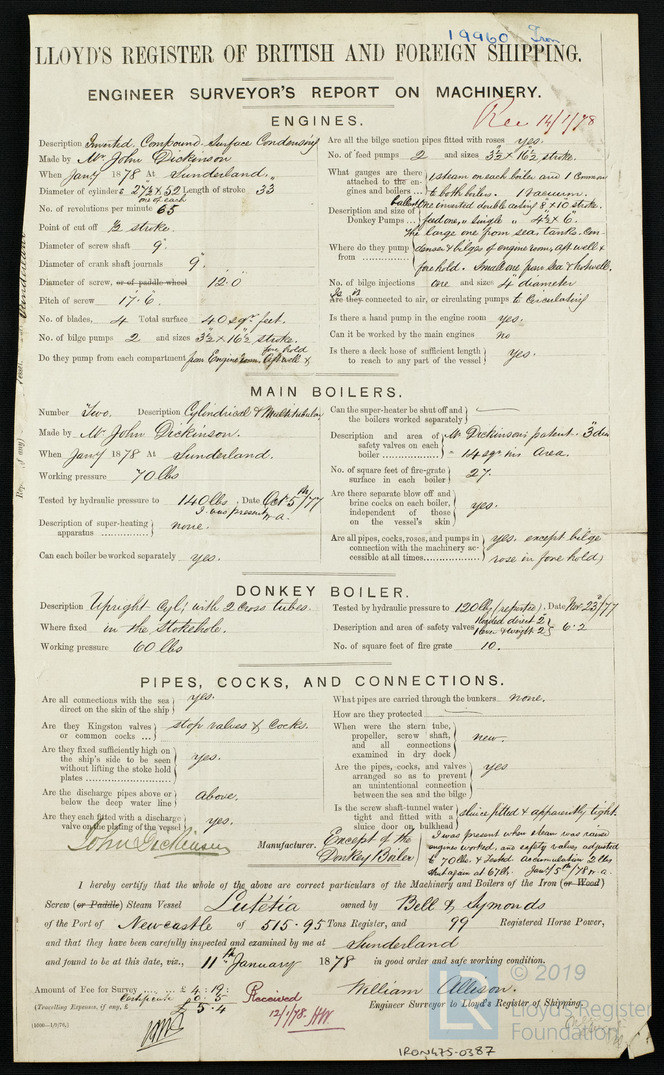 19960 Iron
LLOYD'S REGISTER OF BRITISH AND FOREIGN SHIPPING.
ENGINEER SURVEYOR'S REPORT ON MACHINERY.
Rec 14/1/78
ENGINES.
Description Inverted, Compound, Surface Condensing
Made by Mr John Dickinson
When Jany 1878 At Sunderland.
Diameter of cylinders 27½ x 52 Length of stroke 33
one of each
No. of revolutions per minute 65
Point of cut off ½ stroke.
Diameter of screw shaft 9"
Diameter of crank shaft journals 9"
Diameter of screw, or of paddle wheel 12.0
Pitch of screw 17.6.
No. of blades, 4 Total surface 40 sqr feet.
No. of bilge pumps 2 and sizes 3½ x 16½ stroke.
Do they pump from each compartment from Engine room. Aft well &
fore hold
Are all the bilge suction pipes fitted with roses yes.
No. of feed pumps 2 and sizes 3½ x 16½ stroke.
What gauges are there attached to the engines and boilers ... 1 steam on each boiler and 1 common to both boilers. 1 Vacuum.
Description and size of Donkey Pumps ... ballast one inverted double acting 8 x 10 stroke. feed one, " single " 4½ x 6".
Where do they pump from ... The large one from sea, tanks, Condenser & bilges of engine room, aft well & fore hold. Small one from sea & hotwell.
No. of bilge injections one and sizes 4 diameter
Are they connected to air, or circulating pumps to Circulating
Is in
Is there a hand pump in the engine room yes.
Can it be worked by the main engines no
Is there a deck hose of sufficient length to reach to any part of the vessel yes.
MAIN BOILERS.
Number Two. Description Cylindrical & Multitubular
Made by Mr John Dickinson.
When Jany 1878 At Sunderland.
Working pressure 70 lbs
Tested by hydraulic pressure to 140 lbs, Date Oct 5th/77
I was present W.A.
Description of super-heating apparatus ... none.
Can each boiler be worked separately yes.
Can the super-heater be shut off and the boilers worked separately —
Description and area of safety valves on each boiler ... Mr Dickinson's patent. 3" dia = 14 sqr ins Area.
No. of square feet of fire-grate surface in each boiler 27.
Are there separate blow off and brine cocks on each boiler, independent of those on the vessel's skin yes.
Are all pipes, cocks, roses, and pumps in connection with the machinery accessible at all times ... yes, except bilge rose in fore hold
DONKEY BOILER.
Description Upright Cyl; with 2 cross tubes.
Where fixed in the Stokehole.
Working pressure 60 lbs
Tested by hydraulic pressure to 120 lbs (reported), Date Nov 23/77
Description and area of safety valves loaded direct 2½ 1 lever & weight 2½ 6.2
No. of square feet of fire grate 10.
PIPES, COCKS, AND CONNECTIONS.
Are all connections with the sea direct on the skin of the ship yes.
Are they Kingston valves or common cocks ... stop valves & Cocks.
Are they fixed sufficiently high on the ship's side to be seen without lifting the stoke hold plates ... yes.
Are the discharge pipes above or below the deep water line above.
Are they each fitted with a discharge valve on the plating of the vessel yes.
What pipes are carried through the bunkers none.
How are they protected —
When were the stern tube, propeller, screw shaft, and all connections examined in dry dock new.
Are the pipes, cocks, and valves arranged so as to prevent an unintentional connection between the sea and the bilge yes
Is the screw shaft-tunnel water tight and fitted with a sluice door on bulkhead sluice fitted & apparently tight.
John Dickinson Manufacturer. Except of the Donkey Boiler
I was present when steam was raised engines worked, and safety valves adjusted to 70 lbs. & tested. Accumulation 2 lbs shut again at 67 lb. Jany 5th/78 W.A.
I hereby certify that the whole of the above are correct particulars of the Machinery and Boilers of the Iron (or Wood)
Screw (or Paddle) Steam Vessel Lutétia owned by Bell & Symonds
of the Port of Newcastle of 515.95 Tons Register, and 99 Registered Horse Power,
and that they have been carefully inspected and examined by me at Sunderland
and found to be at this date, viz., 11th January 1878 in good order and safe working condition.
Amount of Fee for Survey ... £ 4:19:
Certificate 0. 5
(Travelling Expenses, if any, £
£ 5.4
Received
12/1/78. HW
William Allison.
Engineer Surveyor to Lloyd's Register of Shipping.
(1000—1/9/76.)
LR
© 2019
Lloyd's Register
Foundation
IRON475-0387